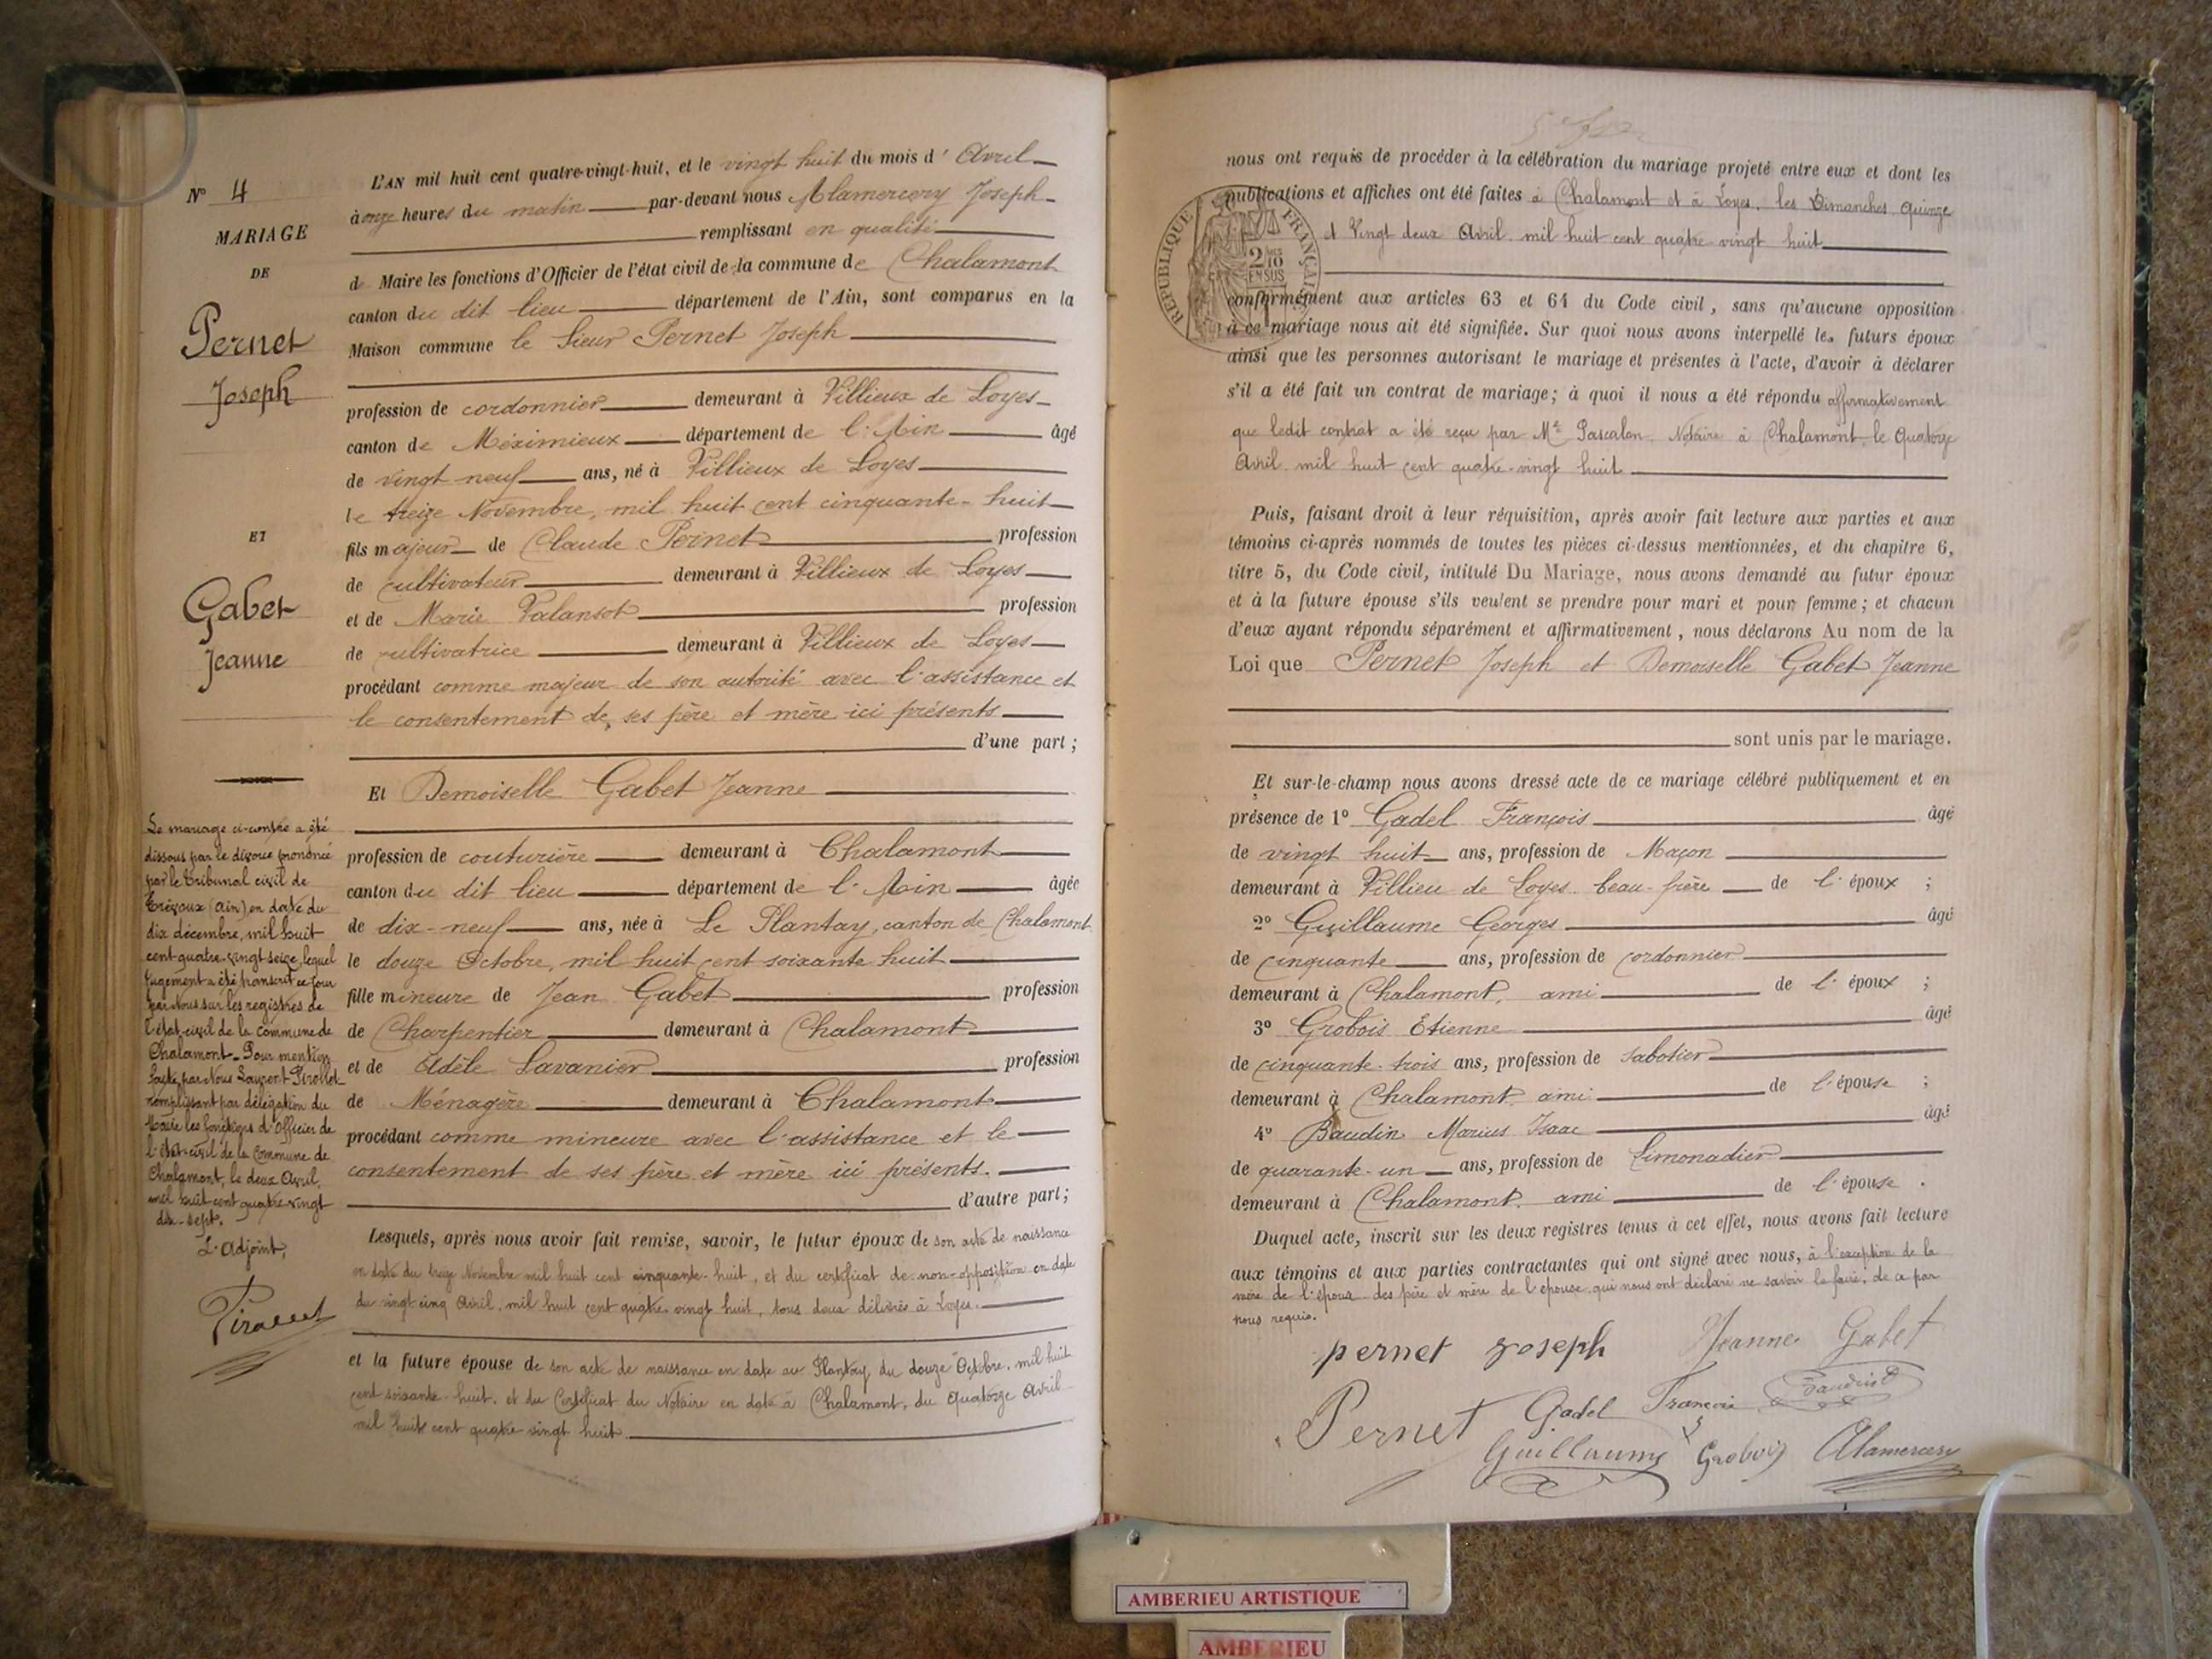 N° 4
MARIAGE
DE
Pernet
Joseph
ET
Gabet
Jeanne
Le mariage ci-contre a été
dissous par le divorce prononcé
par le Tribunal civil de
Trévoux (Ain) en date du
dix décembre, mil huit
cent quatre-vingt seize, lequel
jugement a été transcrit ce jour
par Nous sur les registres de
l'état-civil de la commune de
Chalamont. Pour mention
faite, par Nous Laurent Pirollet
remplissant par délégation du
Maire les fonctions d'Officier de
l'état-civil de la Commune de
Chalamont, le deux Avril,
mil huit cent quatre-vingt
dix-sept.
L'Adjoint,
Pirollet
L'AN mil huit cent quatre-vingt-huit, et le vingt huit du mois d'Avril
à onze heures du matin par-devant nous Alamercery Joseph
remplissant en qualité
de Maire les fonctions d'Officier de l'état civil de la commune de Chalamont
canton du dit lieu département de l'Ain, sont comparus en la
Maison commune le Sieur Pernet Joseph
profession de cordonnier demeurant à Villieux de Loyes
canton de Méximieux département de l'Ain âgé
de vingt neuf ans, né à Villieux de Loyes
le treize Novembre, mil huit cent cinquante-huit
fils majeur de Claude Pernet profession
de cultivateur demeurant à Villieux de Loyes
et de Marie Valansot profession
de cultivatrice demeurant à Villieux de Loyes
procédant comme majeur de son autorité avec l'assistance et
le consentement de ses père et mère ici présents
d'une part;
Et Demoiselle Gabet Jeanne
profession de couturière demeurant à Chalamont
canton du dit lieu département de l'Ain âgée
de dix-neuf ans, née à Le Plantay, canton de Chalamont
le douze Octobre, mil huit cent soixante huit
fille mineure de Jean Gabet profession
de Charpentier demeurant à Chalamont
et de Adèle Lavanier profession
de Ménagère demeurant à Chalamont
procédant comme mineure avec l'assistance et le
consentement de ses père et mère ici présents.
d'autre part;
Lesquels, après nous avoir fait remise, savoir, le futur époux de son acte de naissance
en date du treize Novembre mil huit cent cinquante-huit, et du certificat de non-opposition en date
du vingt cinq Avril, mil huit cent quatre vingt huit, tous deux délivrés à Loyes.
et la future épouse de son acte de naissance en date au Plantay du douze Octobre, mil huit
cent soixante-huit, et du Certificat du Notaire en date à Chalamont, du Quatorze Avril
mil huit cent quatre vingt huit
nous ont requis de procéder à la célébration du mariage projeté entre eux et dont les
publications et affiches ont été faites à Chalamont et à Loyes, les Dimanches Quinze
et Vingt deux Avril mil huit cent quatre vingt huit
REPUBLIQUE FRANÇAISE
2/10 EN SUS
conformément aux articles 63 et 64 du Code civil, sans qu'aucune opposition
à ce mariage nous ait été signifiée. Sur quoi nous avons interpellé les futurs époux
ainsi que les personnes autorisant le mariage et présentes à l'acte, d'avoir à déclarer
s'il a été fait un contrat de mariage; à quoi il nous a été répondu affirmativement
que ledit contrat a été reçu par Me Pascalon, Notaire à Chalamont, le Quatorze
Avril mil huit cent quatre-vingt huit
Puis, faisant droit à leur réquisition, après avoir fait lecture aux parties et aux
témoins ci-après nommés de toutes les pièces ci-dessus mentionnées, et du chapitre 6,
titre 5, du Code civil, intitulé Du Mariage, nous avons demandé au futur époux
et à la future épouse s'ils veulent se prendre pour mari et pour femme; et chacun
d'eux ayant répondu séparément et affirmativement, nous déclarons Au nom de la
Loi que Pernet Joseph et Demoiselle Gabet Jeanne
sont unis par le mariage.
Et sur-le-champ nous avons dressé acte de ce mariage célébré publiquement et en
présence de 1° Gadel François âgé
de vingt huit ans, profession de Maçon
demeurant à Villieu de Loyes beau-frère de l'époux ;
2° Guillaume Georges âgé
de cinquante ans, profession de cordonnier
demeurant à Chalamont, ami de l'époux ;
3° Grobois Étienne âgé
de cinquante-trois ans, profession de sabotier
demeurant à Chalamont ami de l'épouse ;
4° Baudin Marius Isaac âgé
de quarante-un ans, profession de Limonadier
demeurant à Chalamont. ami de l'épouse .
Duquel acte, inscrit sur les deux registres tenus à cet effet, nous avons fait lecture
aux témoins et aux parties contractantes qui ont signé avec nous, à l'exception de la
mère de l'époux, des père et mère de l'épouse qui nous ont déclaré ne savoir le faire, de ce par
nous requis.
pernet joseph Jeanne Gabet
Pernet Gadel François Baudin
Guillaume Grobois Alamercery
AMBERIEU ARTISTIQUE
AMBERIEU